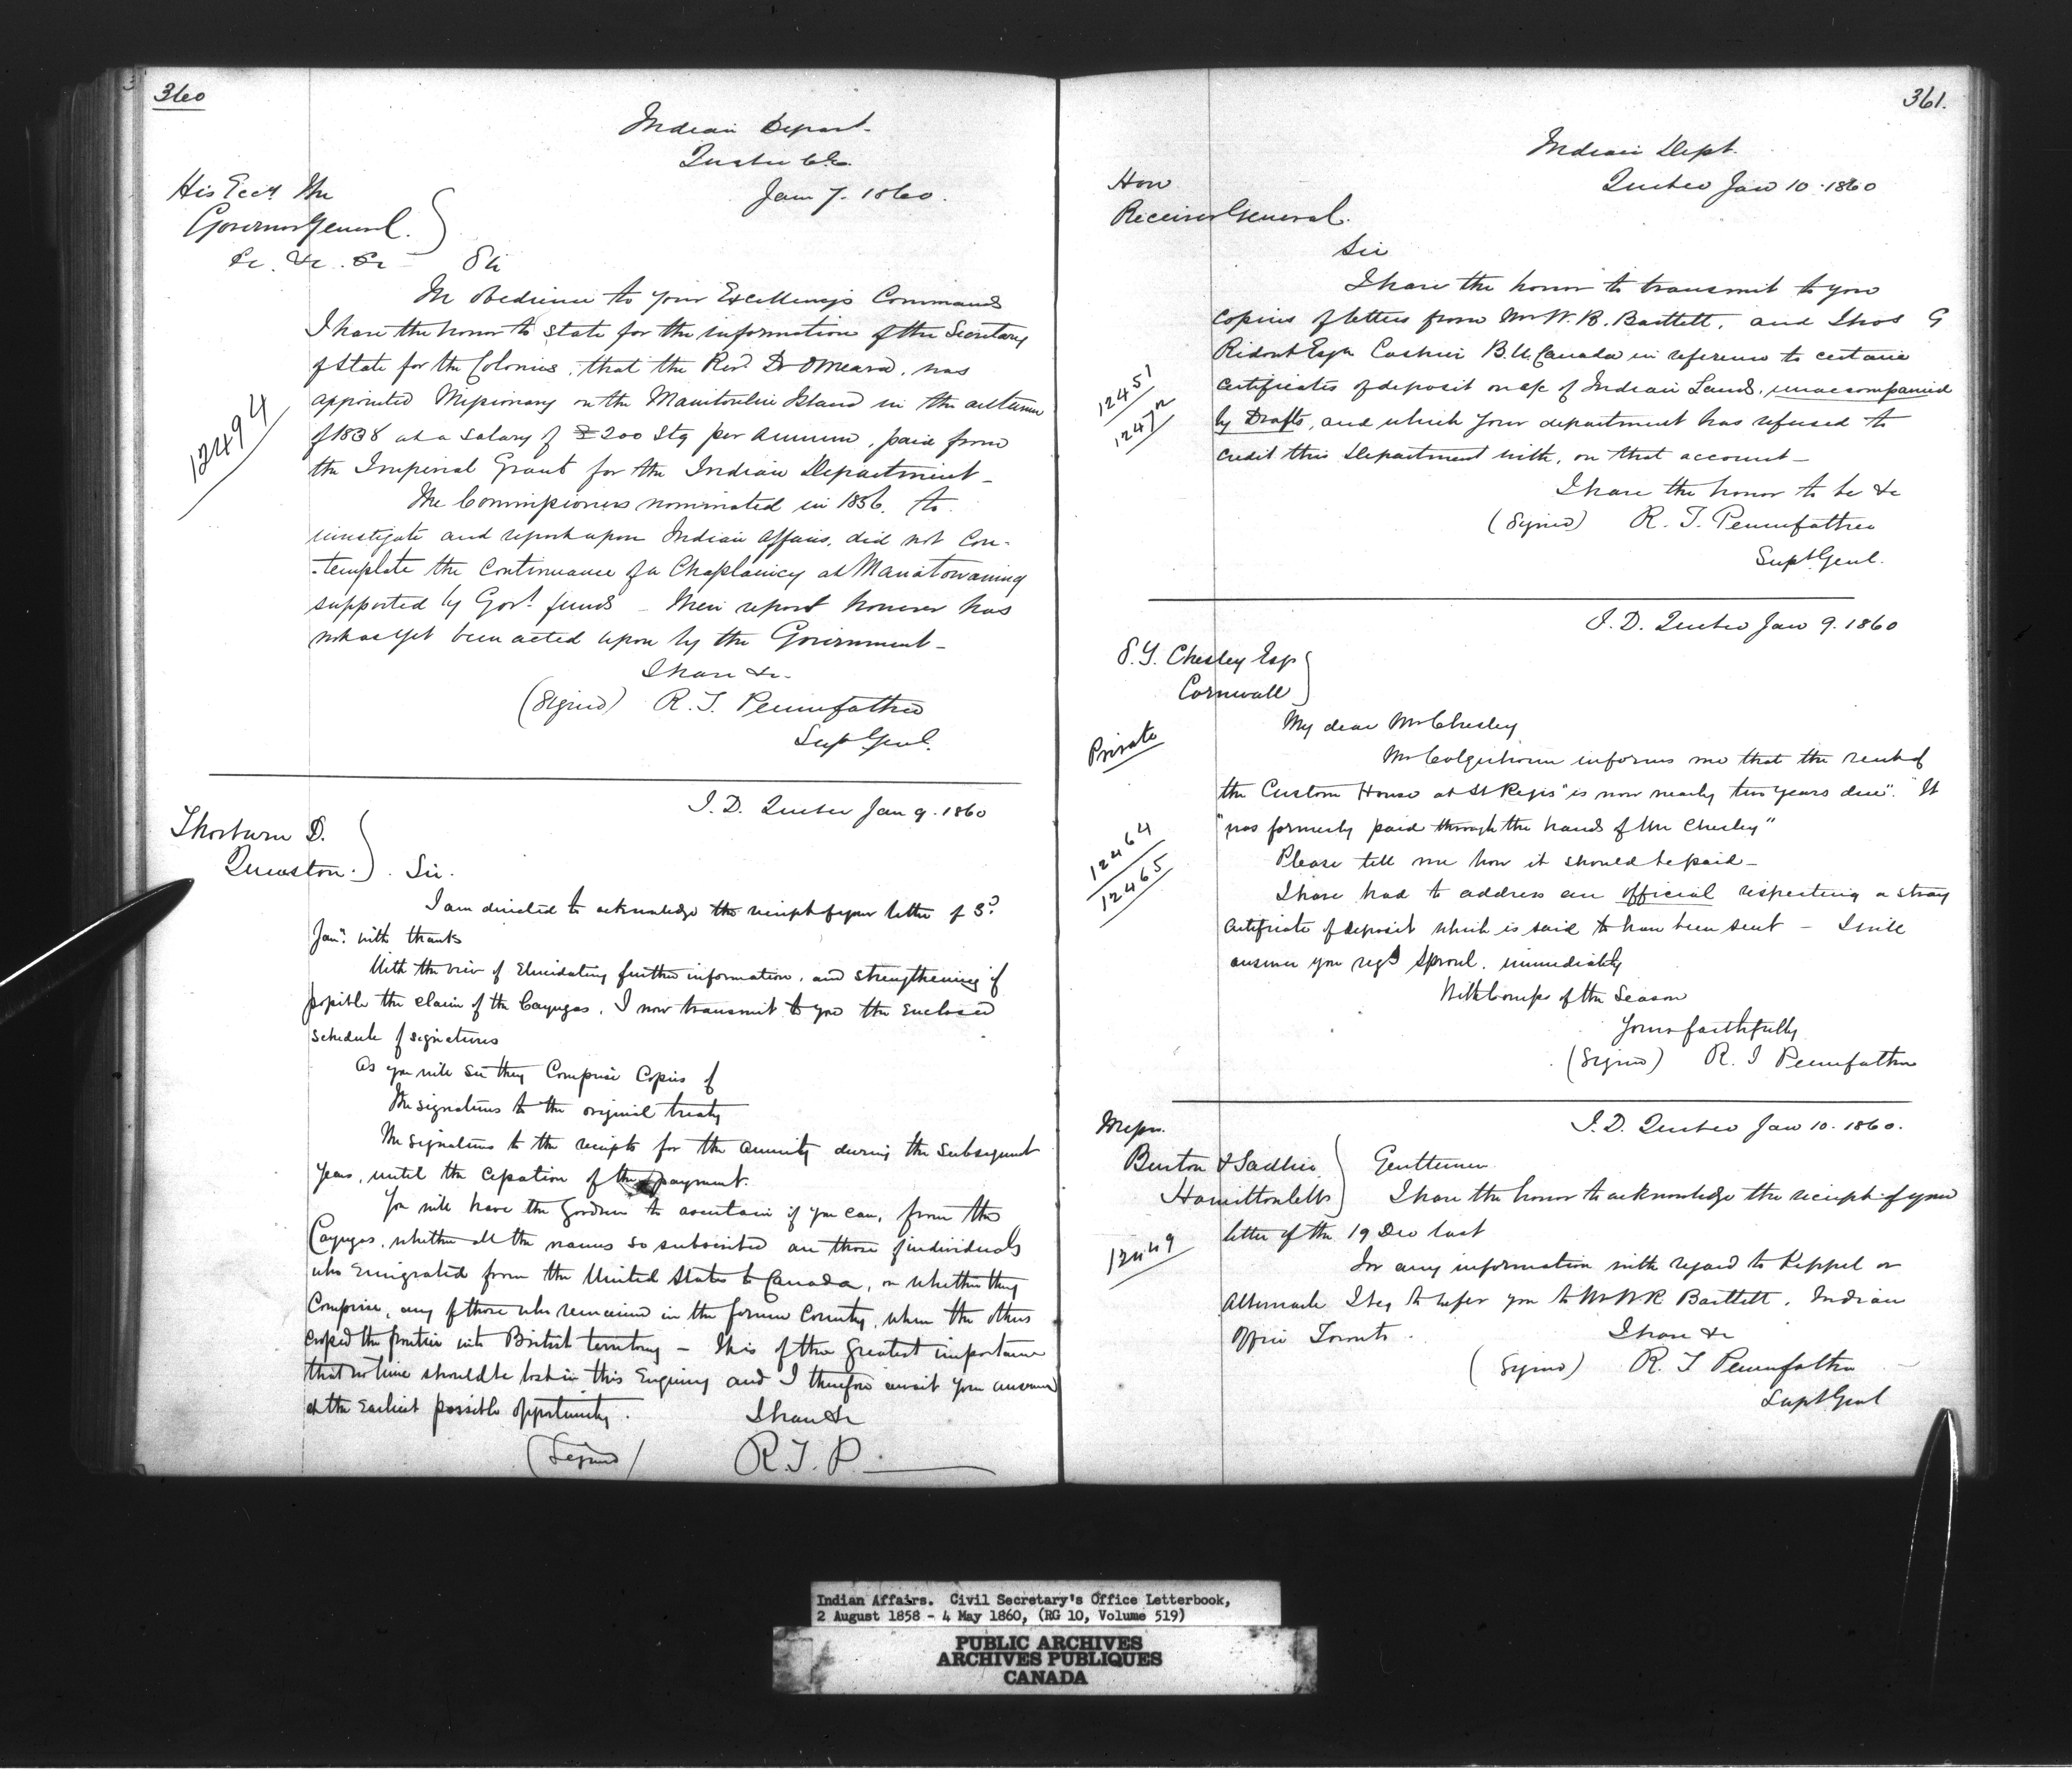 360
Indian Depart.
Quebec
Jan 7. 1860.
His Eccy The
Governor General.
&c. &c. &c
Sir
In obedience to your Excellency's Commands
I have the honor to state for the information of the Secretary
of State for the Colonies, that the Revd Dr OMeara, was
appointed Missionary on the Manitoulin Island in the autumn
of 1838 at a salary of £200 Stg per Annum, paid from
the Imperial Grant for the Indian Department_
12494
The Commissioners nominated in 1856, to
investigate and report upon Indian Affairs, did not con-
-template the Continuance of a Chaplaincy at Manitowaning
supported by Govt. funds _ Their report however has
not as yet been acted upon by the Government_
I have &c.
(Signed) R. T. Pennefather
Supt Genl.
I. D. Quebec Jan 9. 1860
Thorburn D.
Queenston. Sir.
I am directed to acknowledge the receipt of your letter of 3d
Jany. with thanks
With the view of Elucidating further information, and strengthening if
possible the claim of the Cayugas, I now transmit to you the Enclosed
Schedule of signatures
As you will see they Comprise Copies of
The signatures to the original treaty
The signatures to the receipts for the annuity during the Subsequent
years, until the cessation of the payment.
You will have the goodness to ascertain if you can, from the
Cayugas, whether all the names so subscribed are those of individuals
who Emigrated from the United States to Canada, or whether they
Comprise, any of those who remained in the former Country, when the others
crossed the frontier into British territory — It is of the greatest importance
that no time should be lost in this Enquiry and I therefore await your answer
at the Earliest possible opportunity.
I have &c
(Signed) R. T. P.
361.
Indian Dept.
Quebec Jan 10. 1860
Hon
Receiver General.
Sir
I have the honor to transmit to you
copies of letters from Mr W. R. Bartlett, and Thos G
Ridout Esqr Cashier B. U. Canada in reference to certain
certificates of deposit on a/c of Indian Lands, unaccompanied
by Drafts, and which your department has refused to
credit this Department with, on that account_
12451
1247
I have the honor to be &c
(Signed) R. T. Pennefather
Supt Genl.
I. D. Quebec Jan 9. 1860
S. Y. Chesley Esqr
Cornwall
Private
My dear Mr Chesley
Mr Colquhoun informs me that the rent of
the Custom House at St Regis "is now nearly two years due". "It
"was formerly paid through the hands of Mr Chesley"
Please tell me how it should be paid_
12464
12465
I have had to address an official respecting a stray
certificate of deposit which is said to have been sent — I will
answer you regd Sproul, immediately
With Comps of the Season
Yours faithfully
(Signed) R. T Pennefather
I. D. Quebec Jan 10. 1860.
Messrs.
Burton & Sadlier
Hamilton
Gentlemen
I have the honor to acknowledge the receipt of your
letter of the 19 Dec last
12449
For any information with regard to Keppel or
Albemarle I beg to refer you to Mr W R Bartlett, Indian
Office Toronto.
I have &c
(Signed) R. T Pennefather
Supt Genl
Indian Affairs. Civil Secretary's Office Letterbook,
2 August 1858 - 4 May 1860, (RG 10, Volume 519)
PUBLIC ARCHIVES
ARCHIVES PUBLIQUES
CANADA